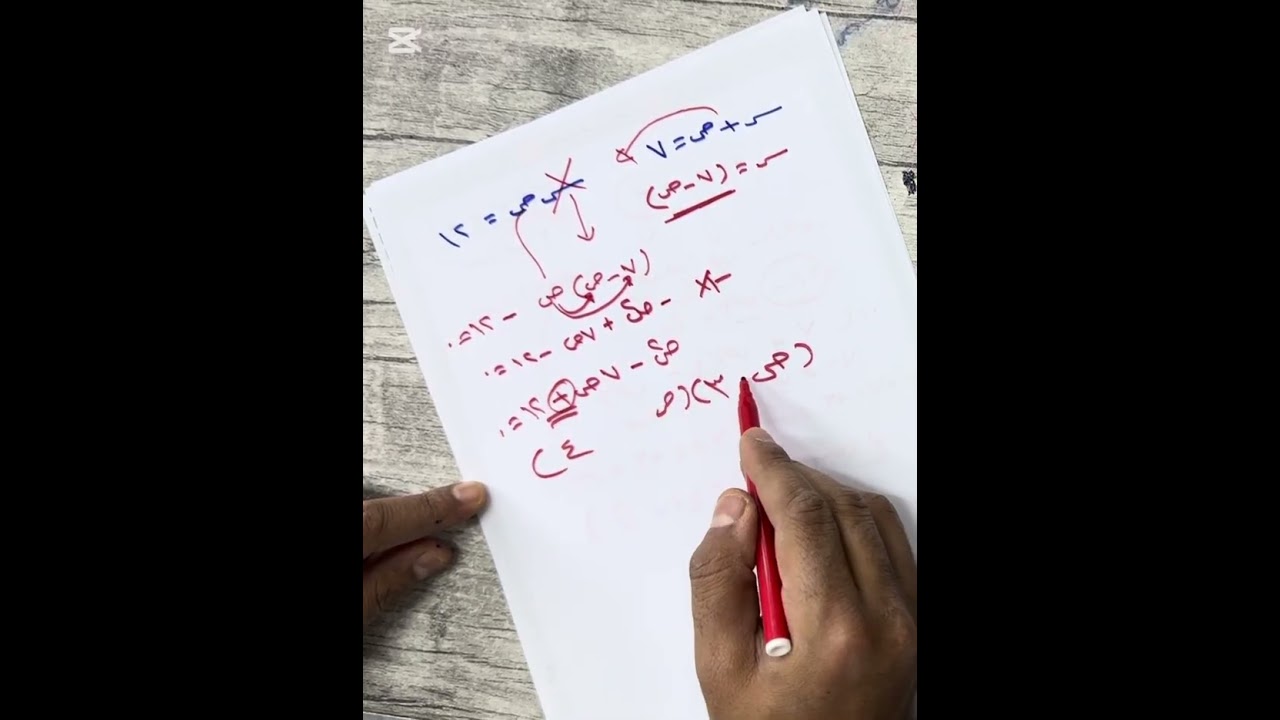 س + ص = ٧
س = (٧ - ص)
س ص = ١٢
ص (٧ - ص) - ١٢ = ٠
- ص٢ + ٧ص - ١٢ = ٠ × -
ص٢ - ٧ص + ١٢ = ٠
(ص ٣)(ص ٤)